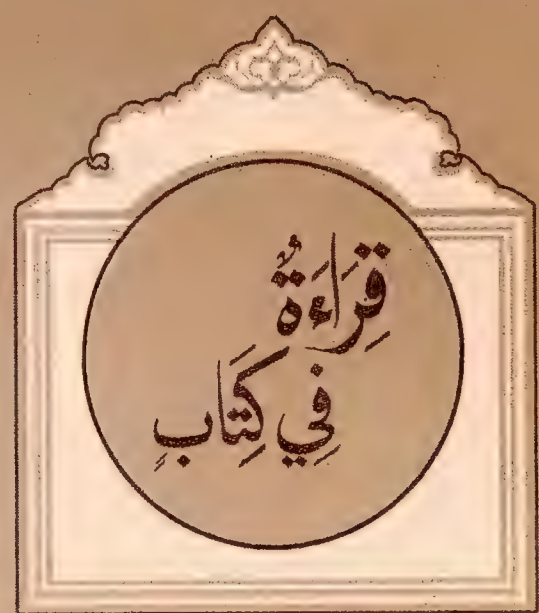 قِرَاءَةٌ
فِي كِتَابٍ